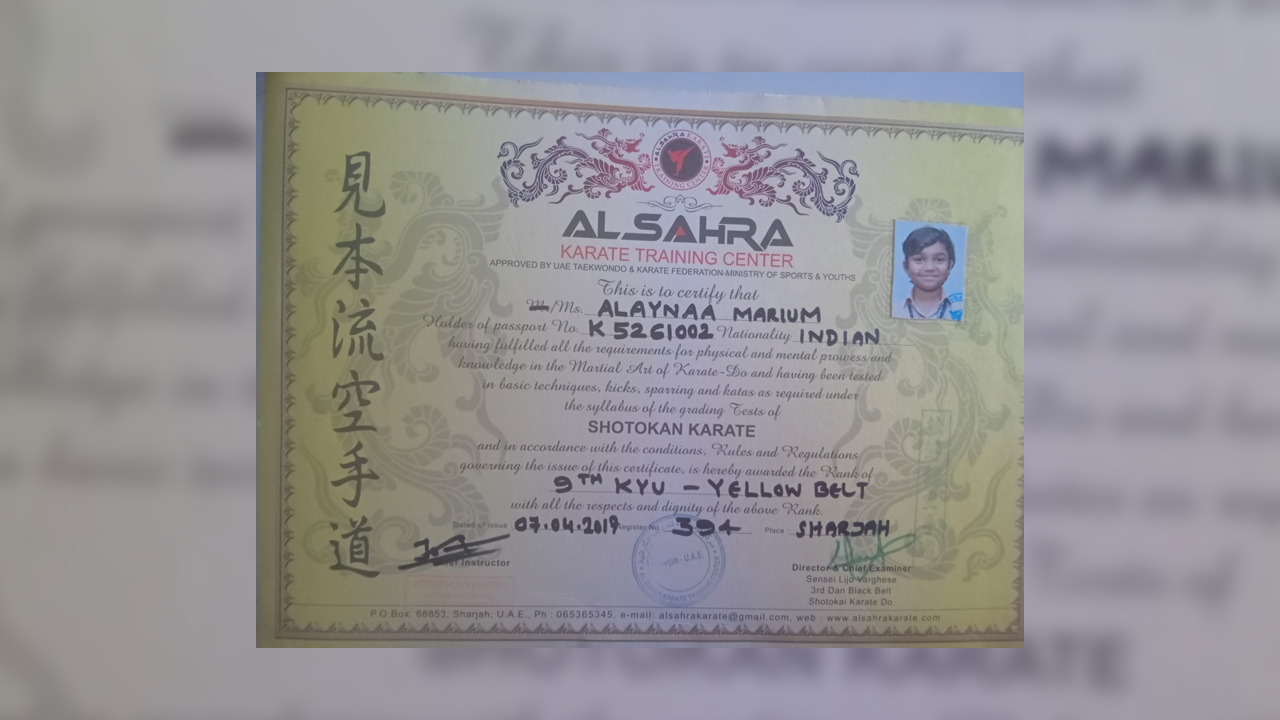 見本流空手道
ALSAHRA KARATE
TRAINING CENTER
ALSAHRA
KARATE TRAINING CENTER
APPROVED BY UAE TAEKWONDO & KARATE FEDERATION-MINISTRY OF SPORTS & YOUTHS
This is to certify that
M/Ms. ALAYNAA MARIUM
Holder of passport No. K 5261002 Nationality INDIAN
having fulfilled all the requirements for physical and mental prowess and
knowledge in the Martial Art of Karate-Do and having been tested
in basic techniques, kicks, sparring and katas as required under
the syllabus of the grading Tests of
SHOTOKAN KARATE
and in accordance with the conditions, Rules and Regulations
governing the issue of this certificate, is hereby awarded the Rank of
9TH KYU - YELLOW BELT
with all the respects and dignity of the above Rank.
Dated of issue 07.04.2019 Register No 394 Place : SHARJAH
Instructor
Director & Chief Examiner
Sensei Lijo Varghese
3rd Dan Black Bell
Shotokai Karate Do
P.O Box: 66853, Sharjah, U.A.E., Ph : 065365345, e-mail: alsahrakarate@gmail.com, web : www.alsahrakarate.com